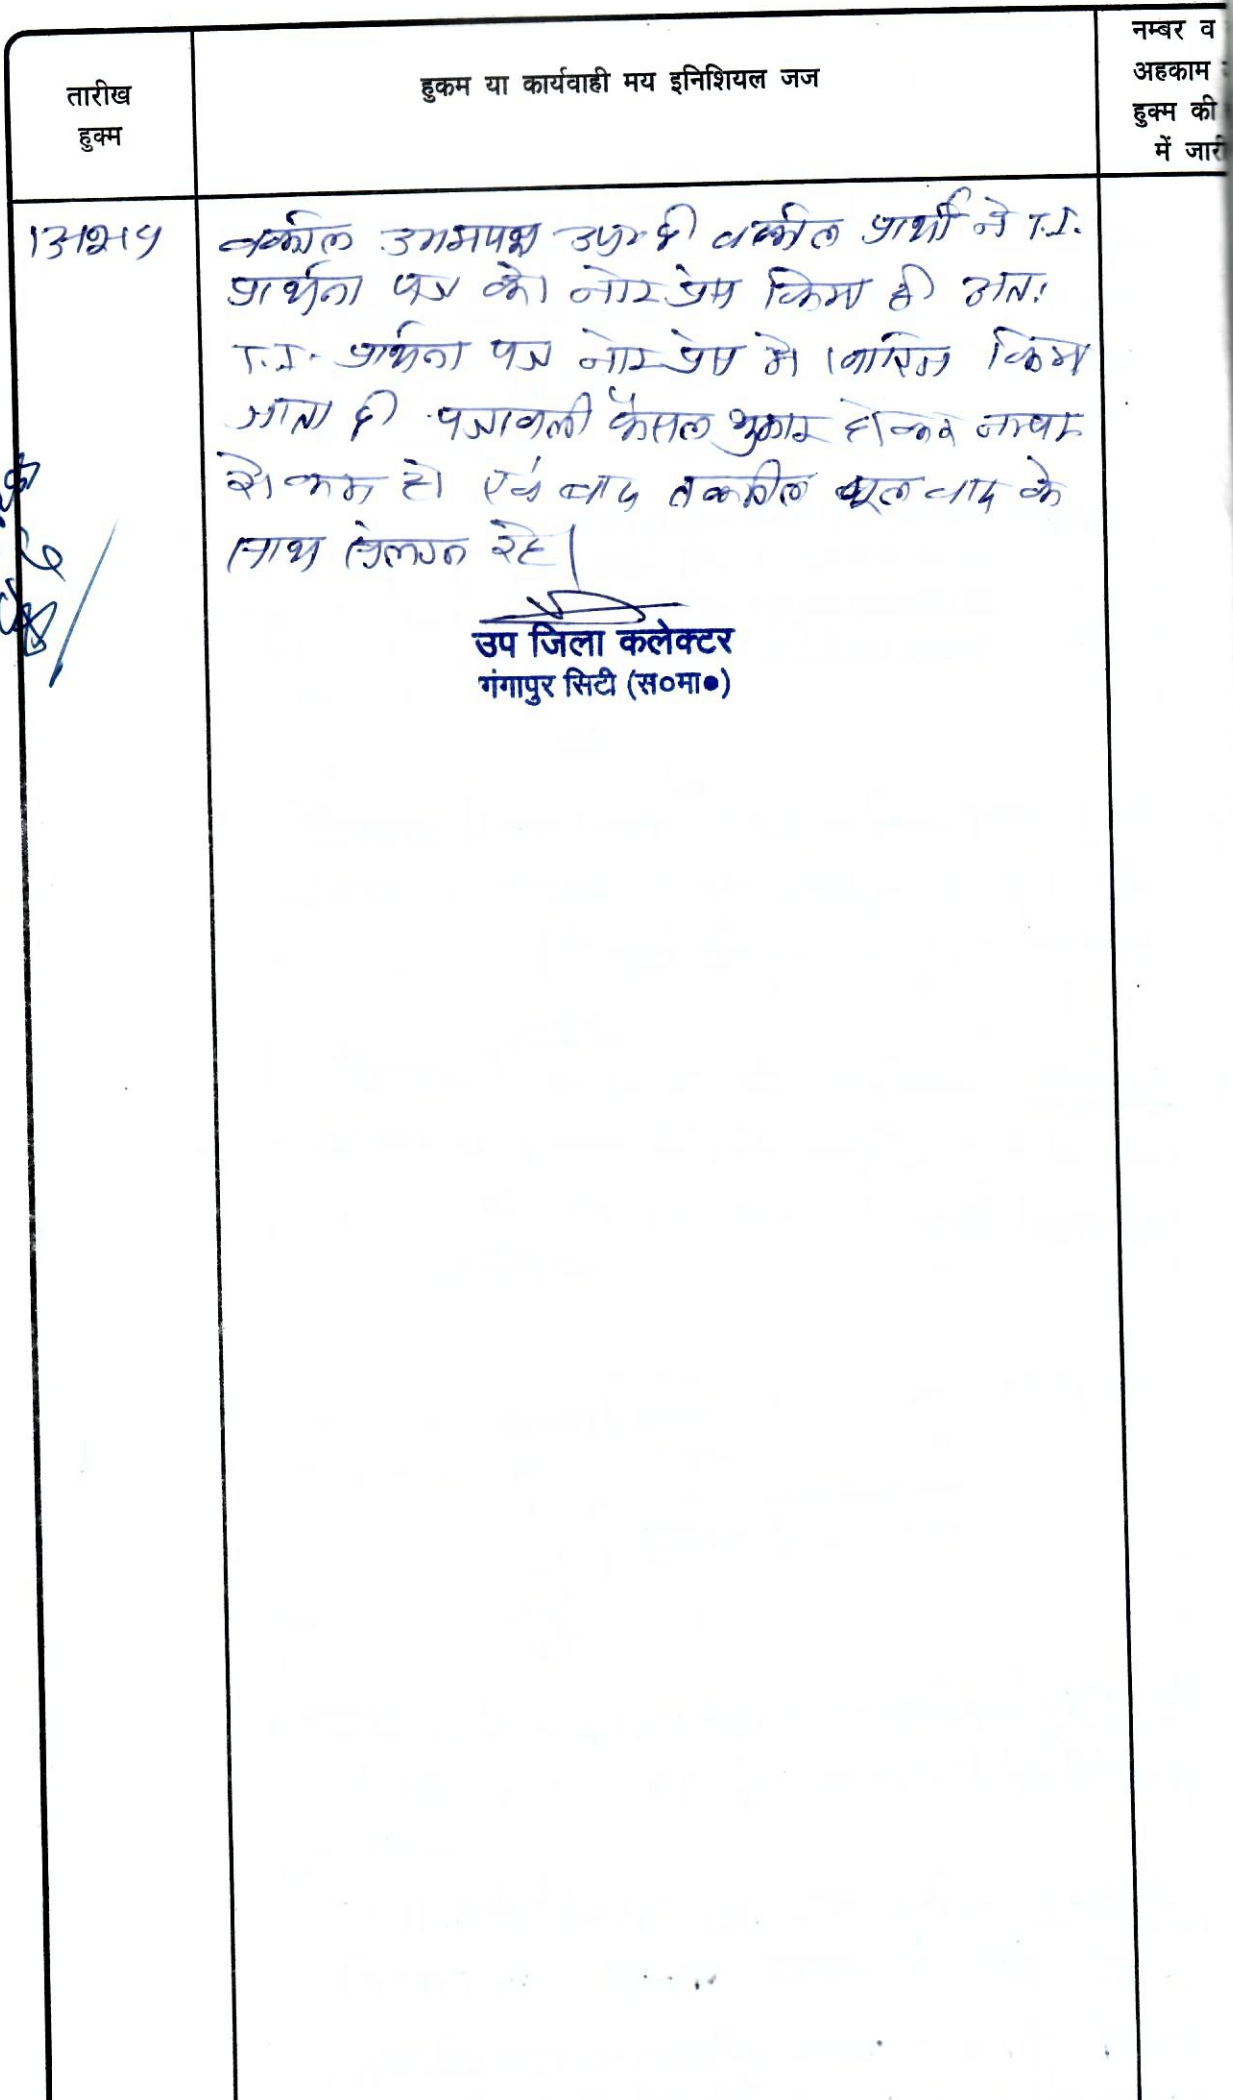 तारीख
हुक्म
हुकम या कार्यवाही मय इनिशियल जज
नम्बर व
अहकाम
हुक्म की
में जारी
वकील उभयपक्ष उप० है। वकील प्रार्थी ने T.I.
प्रार्थना पत्र को नोट प्रेस किया है। अतः
T.I. प्रार्थना पत्र नोट प्रेस में खारिज किया
जाता है। पत्रावली फैसल शुमार होकर नम्बर
से कम हो एवं बाद तकमील मूल वाद के
साथ संलग्न रहे।
उप जिला कलेक्टर
गंगापुर सिटी (स०मा०)